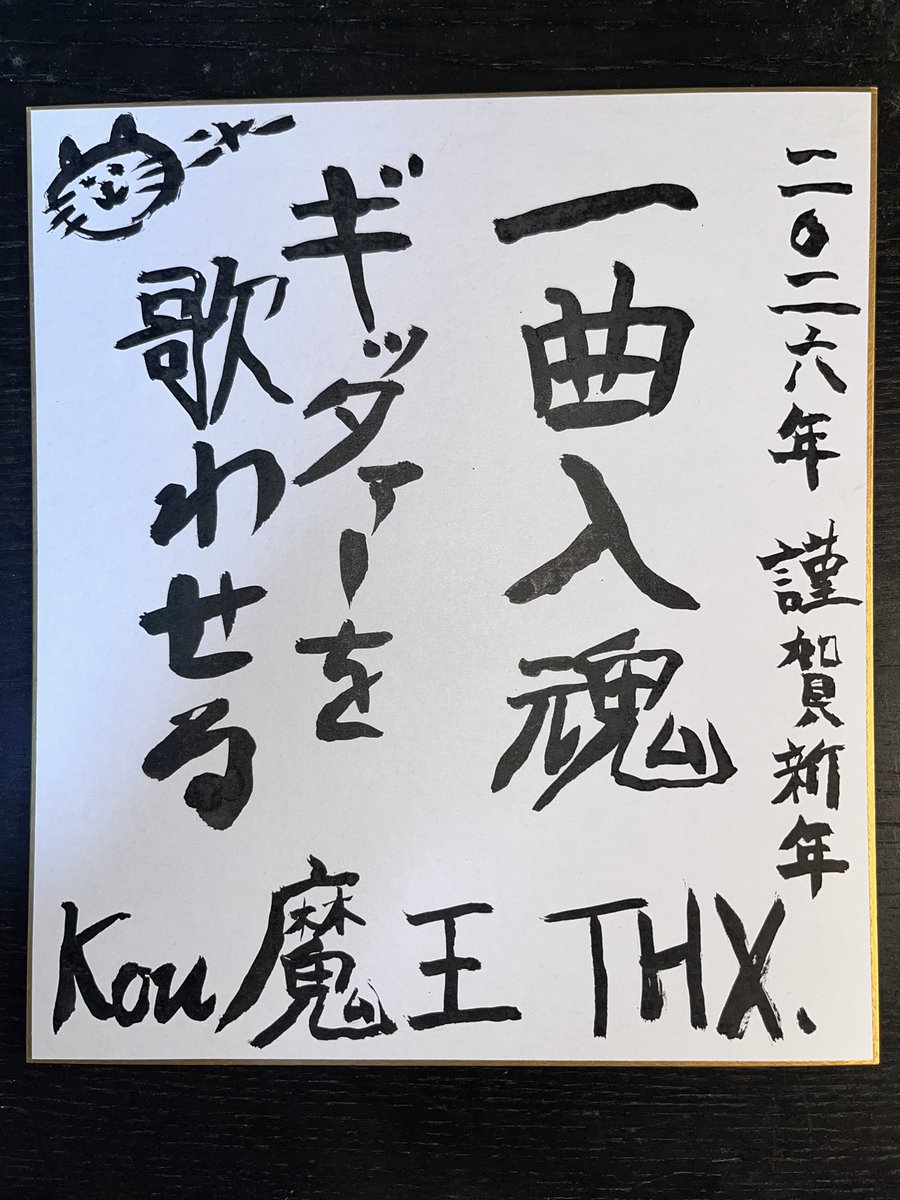 二〇二六年 謹賀新年
一曲入魂
ギッタァーを
歌わせる
ニャー
Kou魔王 THX.